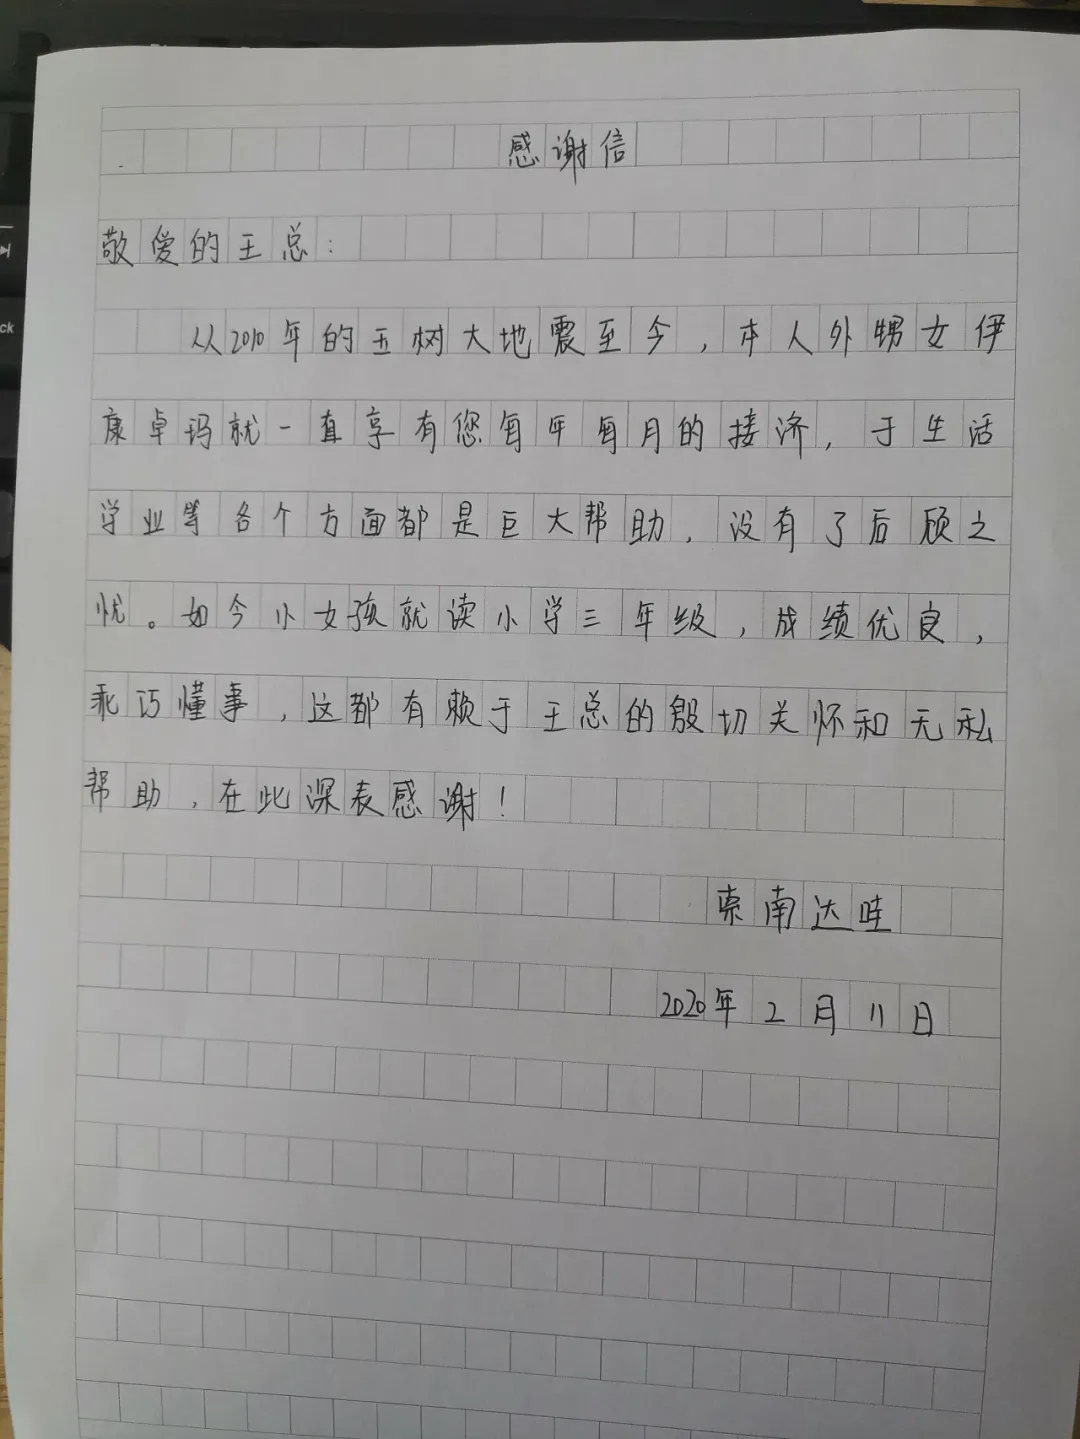 感谢信
敬爱的王总：
从2010年的玉树大地震至今，本人外甥女伊
康卓玛就一直享有您每年每月的接济，于生活
学业等各个方面都是巨大帮助，没有了后顾之
忧。如今小女孩就读小学三年级，成绩优良，
乖巧懂事，这都有赖于王总的殷切关怀和无私
帮助，在此深表感谢！
索南达哇
2020年2月11日